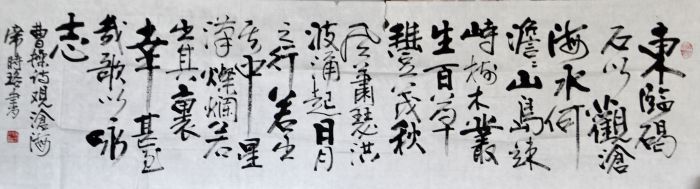 東臨碣
石以觀滄
海水何
澹〻山島竦
峙樹木叢
生百草
豐茂秋
风蕭瑟洪
波涌起日月
之行若出
其中星
漢燦爛若
出其裏
幸甚至
哉歌以咏
志
曹操诗观滄海
席時書